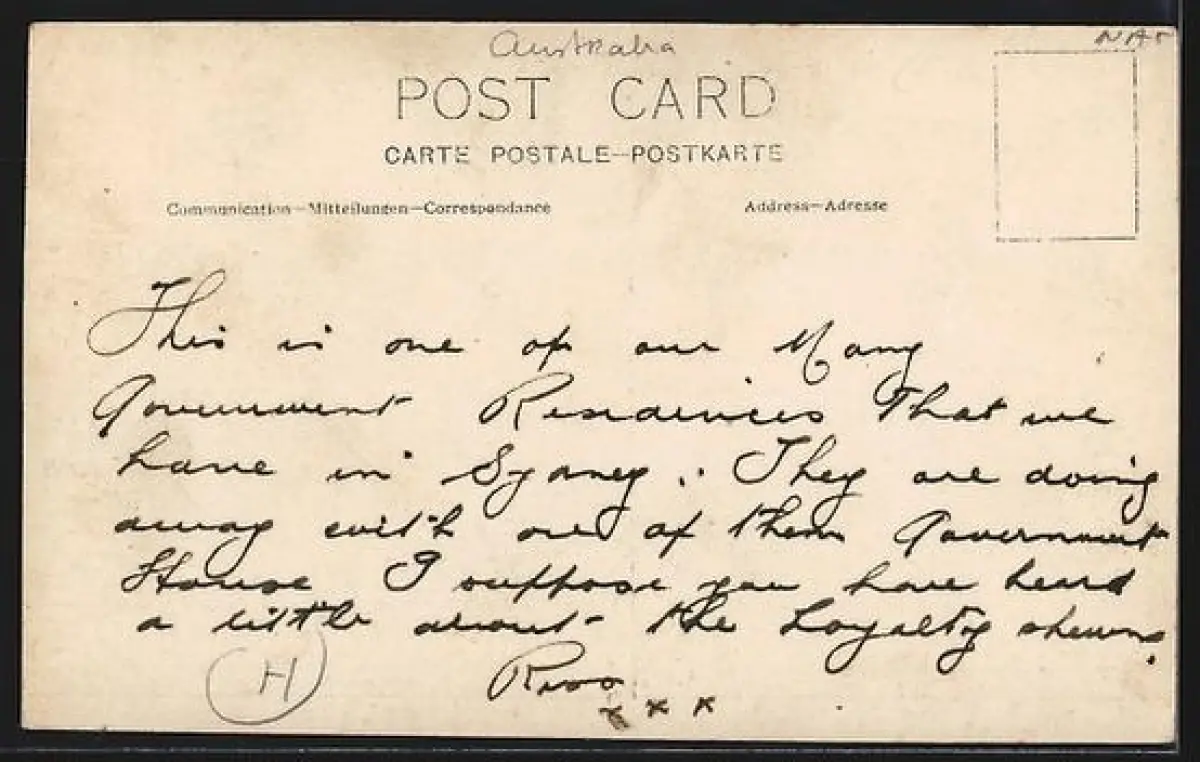 Australia
NAT
POST CARD
CARTE POSTALE—POSTKARTE
Communication—Mitteilungen—Correspondance
Address—Adresse
This is one of our Many
Government Residences That we
have in Sydney. They are doing
away with one of them Government
House I suppose you have heard
a little about the Loyalty shewn.
H
x x x